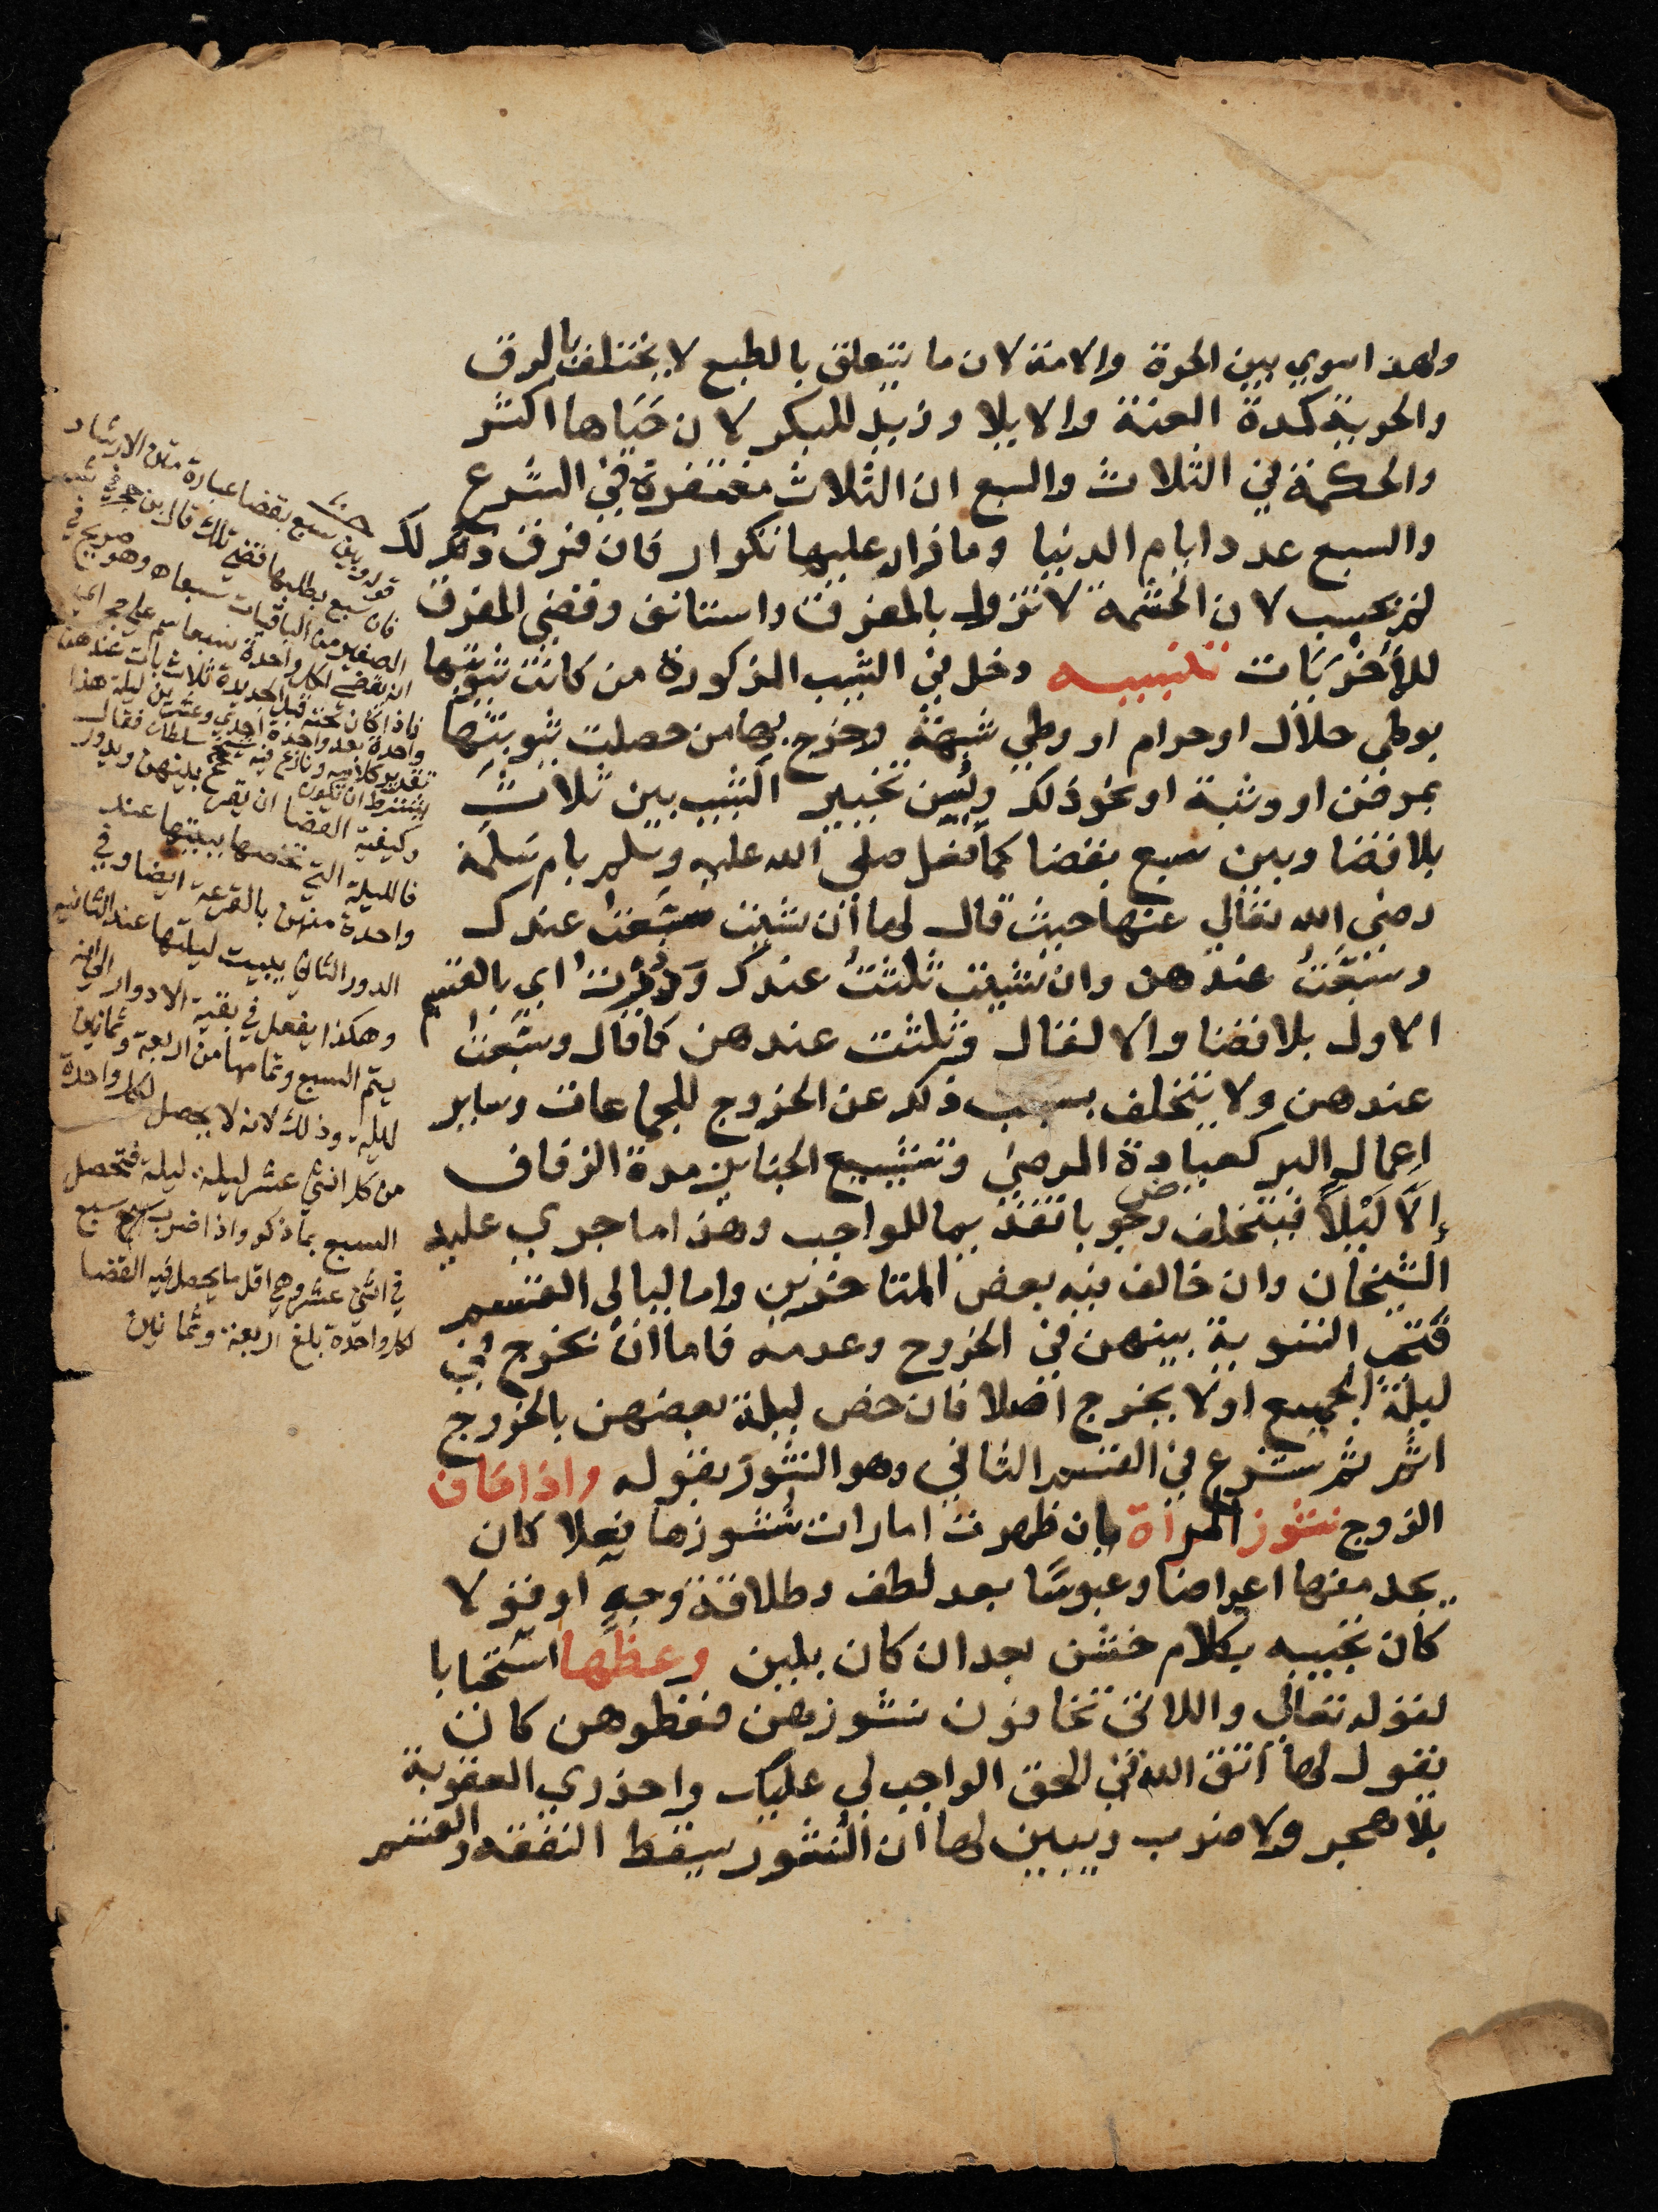 ولهذا سوي بين الحرة والامة لان ما يتعلق بالطبع لا يختلف بالرق
والحرية كمدة العنة والايلا وزيد للبكر لان حياها اكثر
والحكمة في الثلاث والسبع ان الثلاث مغتفرة في الشرع
والسبع عدد ايام الدنيا وما زاد عليها تكرار فان فرق ذلك
لم يحسب لان الحشمة لا تزول بالمفرق واستانف وقضي المفرق
للأخريات تنبيه دخل في الثيب المذكورة من كانت ثيوبتها
بوطي حلال او حرام او وطي شبهة وخرج بها من حصلت ثيوبتها
بمرض او وثبة او نحو ذلك ويسن تخيير الثيب بين ثلاث
بلا قضا وبين سبع بقضا كما فعل صلى الله عليه وسلم بام سلمة
رضي الله تعالي عنها حيث قال لها ان شيت سبعت عندك
وسبعت عندهن وان شيت ثلثت عندك ودرت اي بالقسم
الاول بلا قضا والا لقال وثلثت عندهن كما قال وسبعت
عندهن ولا يتخلف بسبب ذلك عن الخروج للجماعات وساير
اعمال البر كعيادة المرضي وتشييع الجنايز مدة الزفاف
إلا ليلاً فيتخلف وجوبا تقديما للواجب وهذا ما جري عليه
الشيخان وان خالف فيه بعض المتاخرين واما ليالي القسم
فتجب التسوية بينهن في الخروج وعدمه فاما ان يخرج في
ليلة الجميع او لا يخرج اصلا فان خص ليلة بعضهن بالخروج
اثم ثم شرع في القسم الثاني وهو النشوز بقوله واذا خاف
الزوج نشوز المراة بان ظهرت امارات نشوزها فعلا كان
يجد منها اعراضا وعبوسًا بعد لطف وطلاقة وجه او قولا
كان تجيبه بكلام خشن بعد ان كان بلين وعظها استحبابا
لقوله تعالي واللاتي تخافون نشوزهن فعظوهن كان
يقول لها اتق الله في الحق الواجب لي عليك واحذري العقوبة
بلا هجر ولا ضرب ويبين لها ان النشوز يسقط النفقه والقسم
قوله وبين سبع بقضا عبارة متن الارشاد
فان سبع بطلبها قضي تلك قال ابن حجر في
الباقيات سبعا وهو صريح في
فاذا كان تحته قبل الجديدة ثلاث بات عندهن
واحدة بعد واحدة احدي وعشرين ليلة هذا
تقدير كلامه ونازع فيه سلطان فقال
يشترط ان يكون
وكيفية القضا ان يقرع بينهن ويدور
فالليلة التي تخصها يبيتها عند
واحدة منهن بالقرعة ايضا وفي
الدور الثاني يبيت ليلتها عند الثانيه
وهكذا يفعل في بقية الادوار الي ان
يتم السبع وتمامها من اربعة وثمانين
ليلة وذلك لانه لا يحصل لكل واحدة
من كل اثني عشر ليلة ليلة فتحصل
السبع بما ذكر واذا ضرب سبع
في اثني عشر وهي اقل ما يحصل فيه القضا
لكل واحدة بلغ اربعة وثمانين